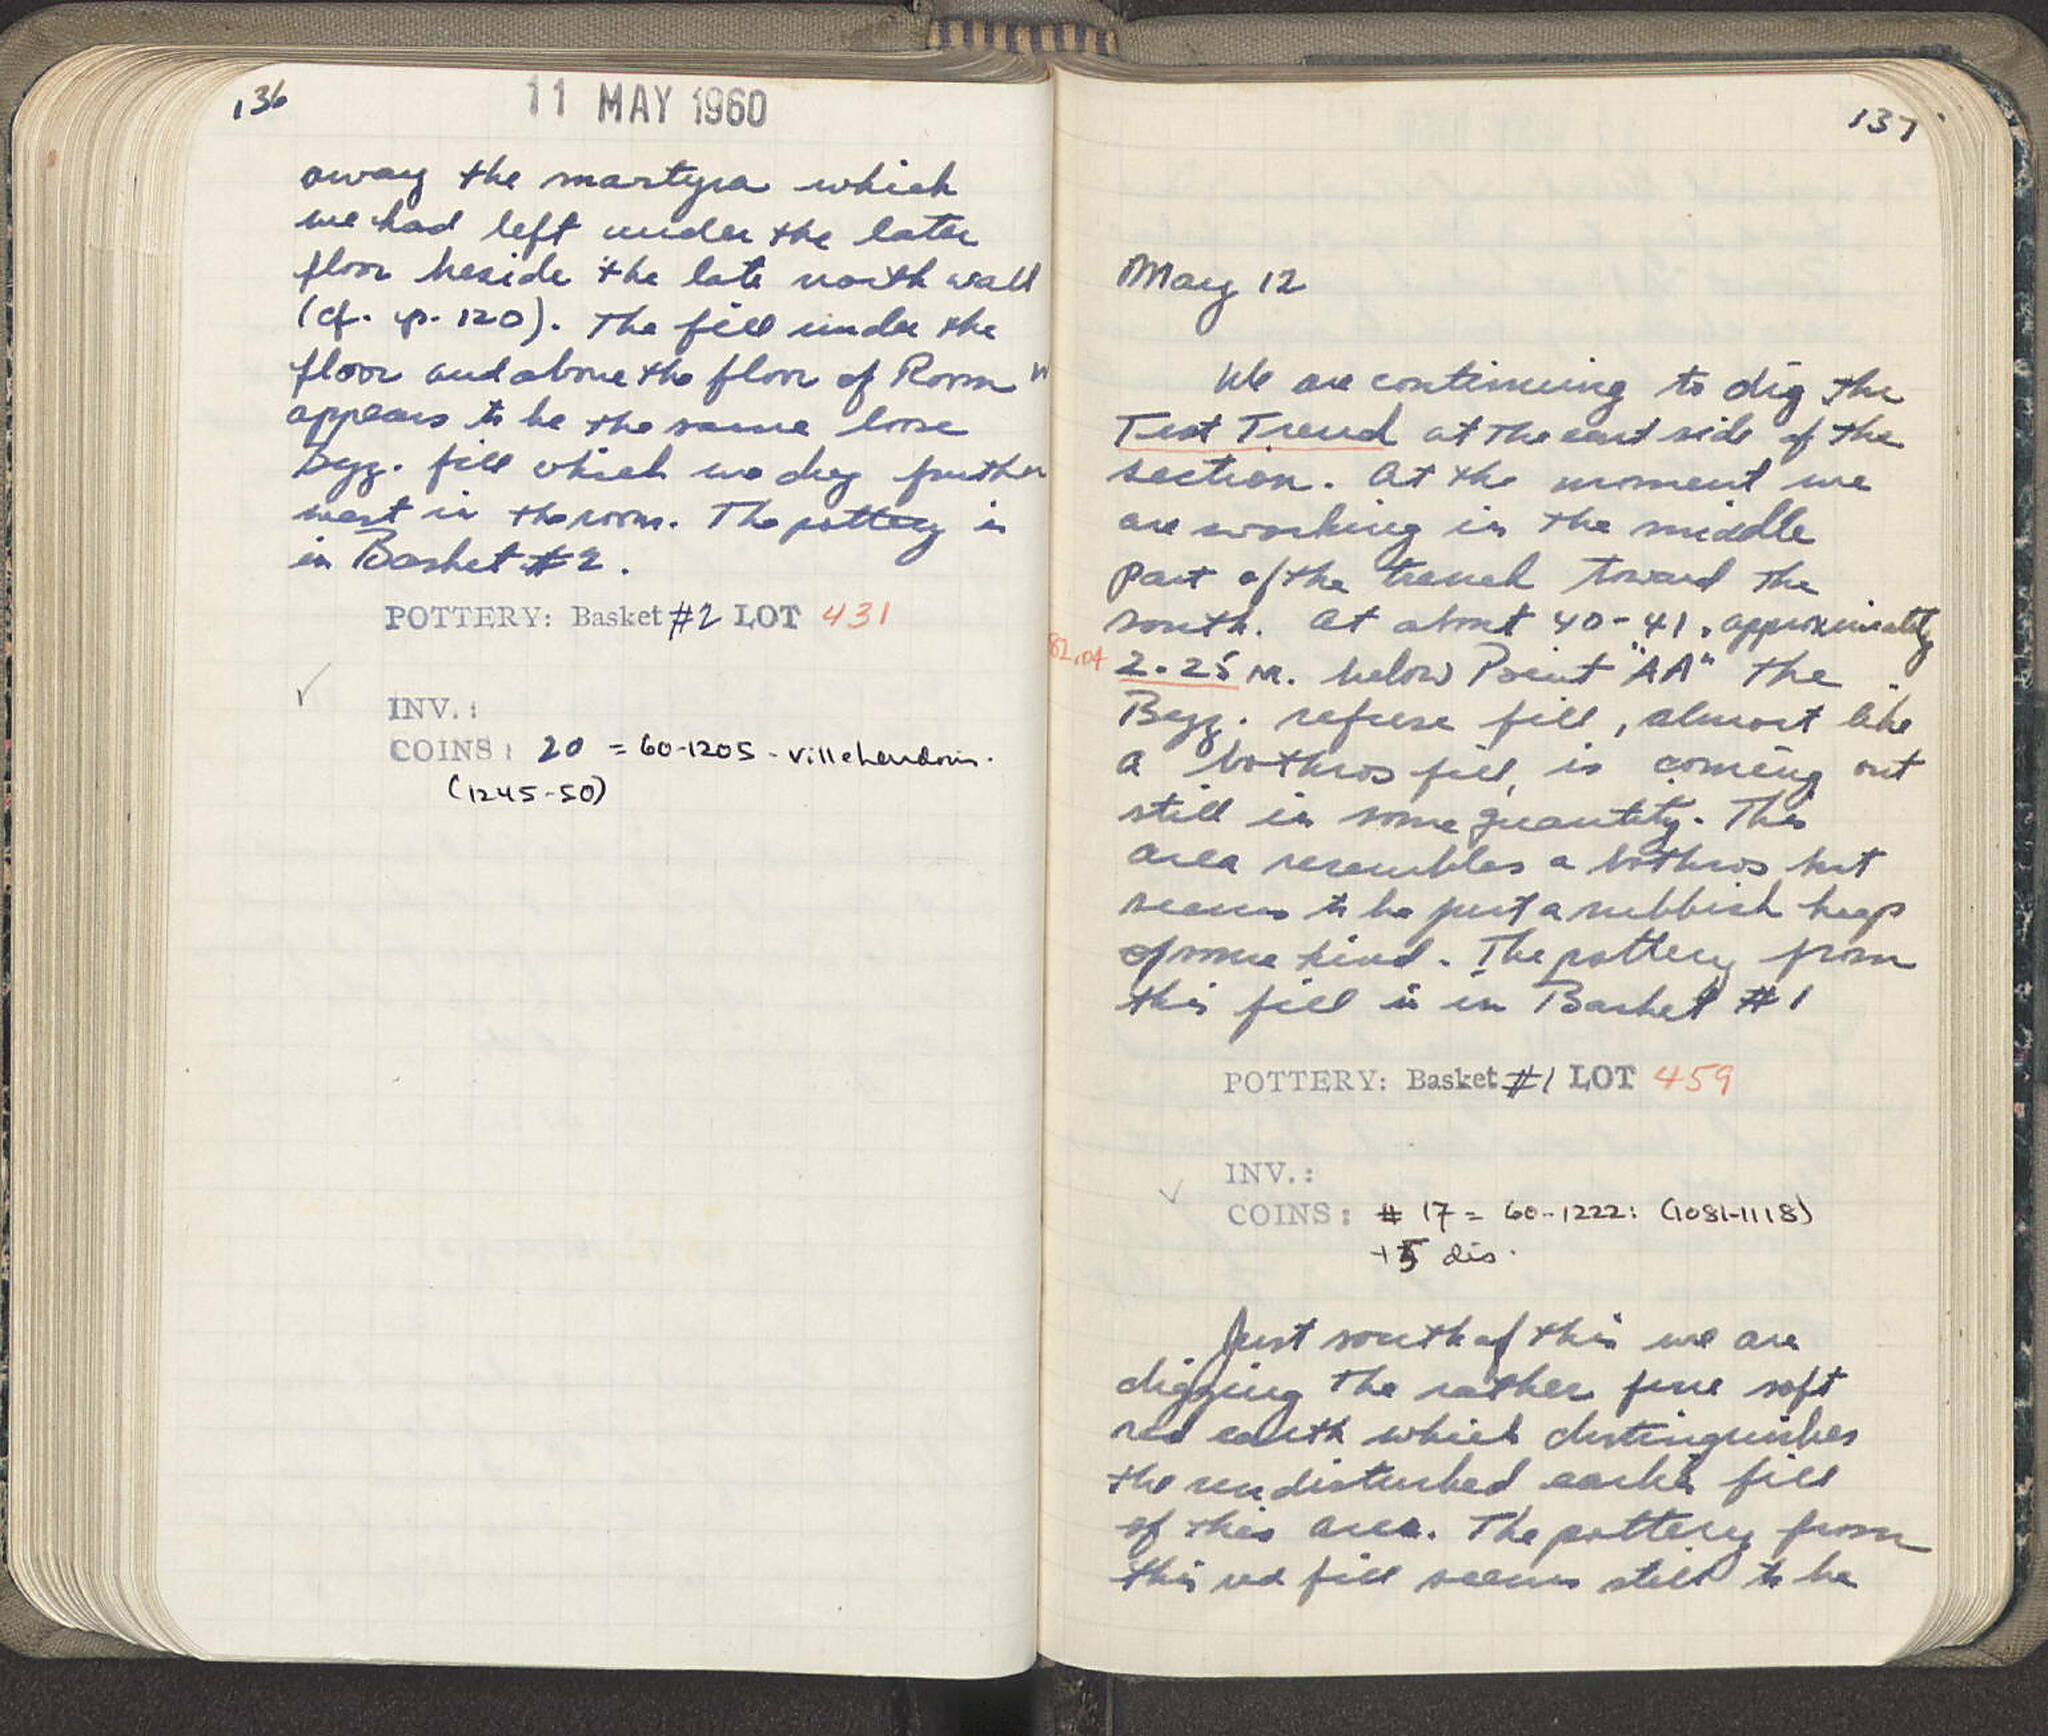 136
11 MAY 1960
away the martyra which
we had left under the later
floor beside the late north wall
(cf. p. 120). The fill under the
floor and above the floor of Room
appears to be the same loose
Byz. fill which we dug further
west in the room. The pottery is
in Basket #2.
POTTERY: Basket #2 LOT 431
INV.:
COINS: 20 = 60-1205 - Villehardouin.
(1245-50)
137
May 12
We are continuing to dig the
Test Trench at the east side of the
section. At the moment we
are working in the middle
part of the trench toward the
south. At about 40-41, approximately
82.04
2.25 m. below Point "AA" the
Byz. refuse fill, almost like
a bothros fill, is coming out
still in some quantity. This
area resembles a bothros but
seems to be just a rubbish heap
of some kind. The pottery from
this fill is in Basket #1
POTTERY: Basket #1 LOT 459
INV.:
COINS: # 17 = 60-1222: (1081-1118)
+5 dis.
Just south of this we are
digging the rather fine soft
red earth which distinguishes
the undisturbed earlier fill
of this area. The pottery from
this red fill seems still to be